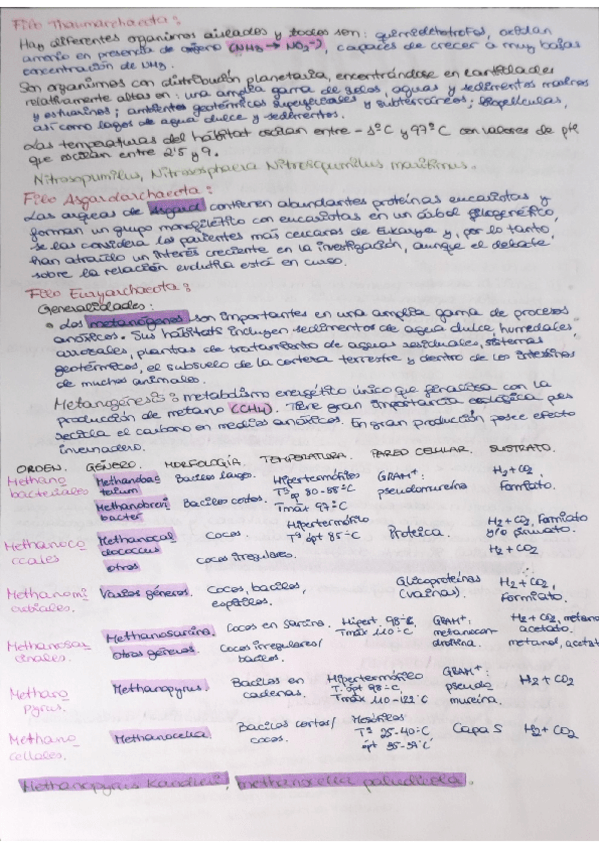 Filo Thaumarchaeota:
Hay diferentes organismos aislados y todos son: quimiolitotrofos, oxidan
amonio en presencia de oxígeno (NH3 → NO2-), capaces de crecer a muy bajas
concentración de NH3.
Son organismos con distribución planetaria, encontrándose en cantidades
relativamente altas en: una amplia gama de suelos, aguas y sedimentos marinos
y estuarinos; ambientes geotérmicos superficiales y subterráneos; biopelículas,
así como lagos de agua dulce y sedimentos.
Las temperaturas del hábitat oscilan entre -1°C y 97°C con valores de pH
que oscilan entre 2'5 y 9.
Nitrosopumilus, Nitrososphaera Nitrosopumilus maritimus.
Filo Asgardarchaeota:
Las arqueas de Asgard contienen abundantes proteínas eucariotas y
forman un grupo monofilético con eucariotas en un árbol filogenético,
se las considera los parientes más cercanos de Eukarya y, por lo tanto,
han atraído un interés creciente en la investigación, aunque el debate
sobre la relación evolutiva está en curso.
Filo Euryarchaeota:
Generalidades:
• Los metanógenos son importantes en una amplia gama de procesos
anóxicos. Sus hábitats incluyen sedimentos de agua dulce, humedales,
arrozales, plantas de tratamiento de aguas residuales, sistemas
geotérmicos, el subsuelo de la corteza terrestre y dentro de los intestinos
de muchos animales.
Metanogénesis: metabolismo energético único que finaliza con la
producción de metano (CH4). Tiene gran importancia ecológica pues
recicla el carbono en medios anóxicos. En gran producción posee efecto
invernadero.
ORDEN. GÉNERO. MORFOLOGÍA. TEMPERATURA. PARED CELULAR. SUSTRATO.
Methano bacteriales Methanobac terium Bacilos largos. Hipertermófilos Tª op 80-85°C Tmáx 97°C GRAM+: pseudomureína H2 + CO2, formiato.
Methanobrevi bacter Bacilos cortos.
Methanoco ccales Methanocal dococcus Cocos. Hipertermófilo Tª ópt 85°C Proteica. H2 + CO2, formiato y/o piruvato.
otros Cocos irregulares. H2 + CO2
Methanomi crobiales. Varios géneros. Cocos, bacilos, espirilos. Glicoproteínas (vainas). H2 + CO2, formiato.
Methanosar cinales. Methanosarcina. Cocos en sarcina. Hipert. 98°C Tmáx 110°C GRAM+: metanocon droitina. H2 + CO2, metanol acetato.
otros géneros. Cocos irregulares/ bacilos. metanol, acetat
Methano pyrus. Methanopyrus. Bacilos en cadenas. Hipertermófilo T. ópt 98°C Tmáx 110-122°C GRAM+: pseudo mureína. H2 + CO2
Methano cellales. Methanocella Bacilos cortos/ cocos. Mesófilos Tª 25-40°C ópt 35-37°C Capa S H2 + CO2
Methanopyrus Kandleri, methanocella paludicola.